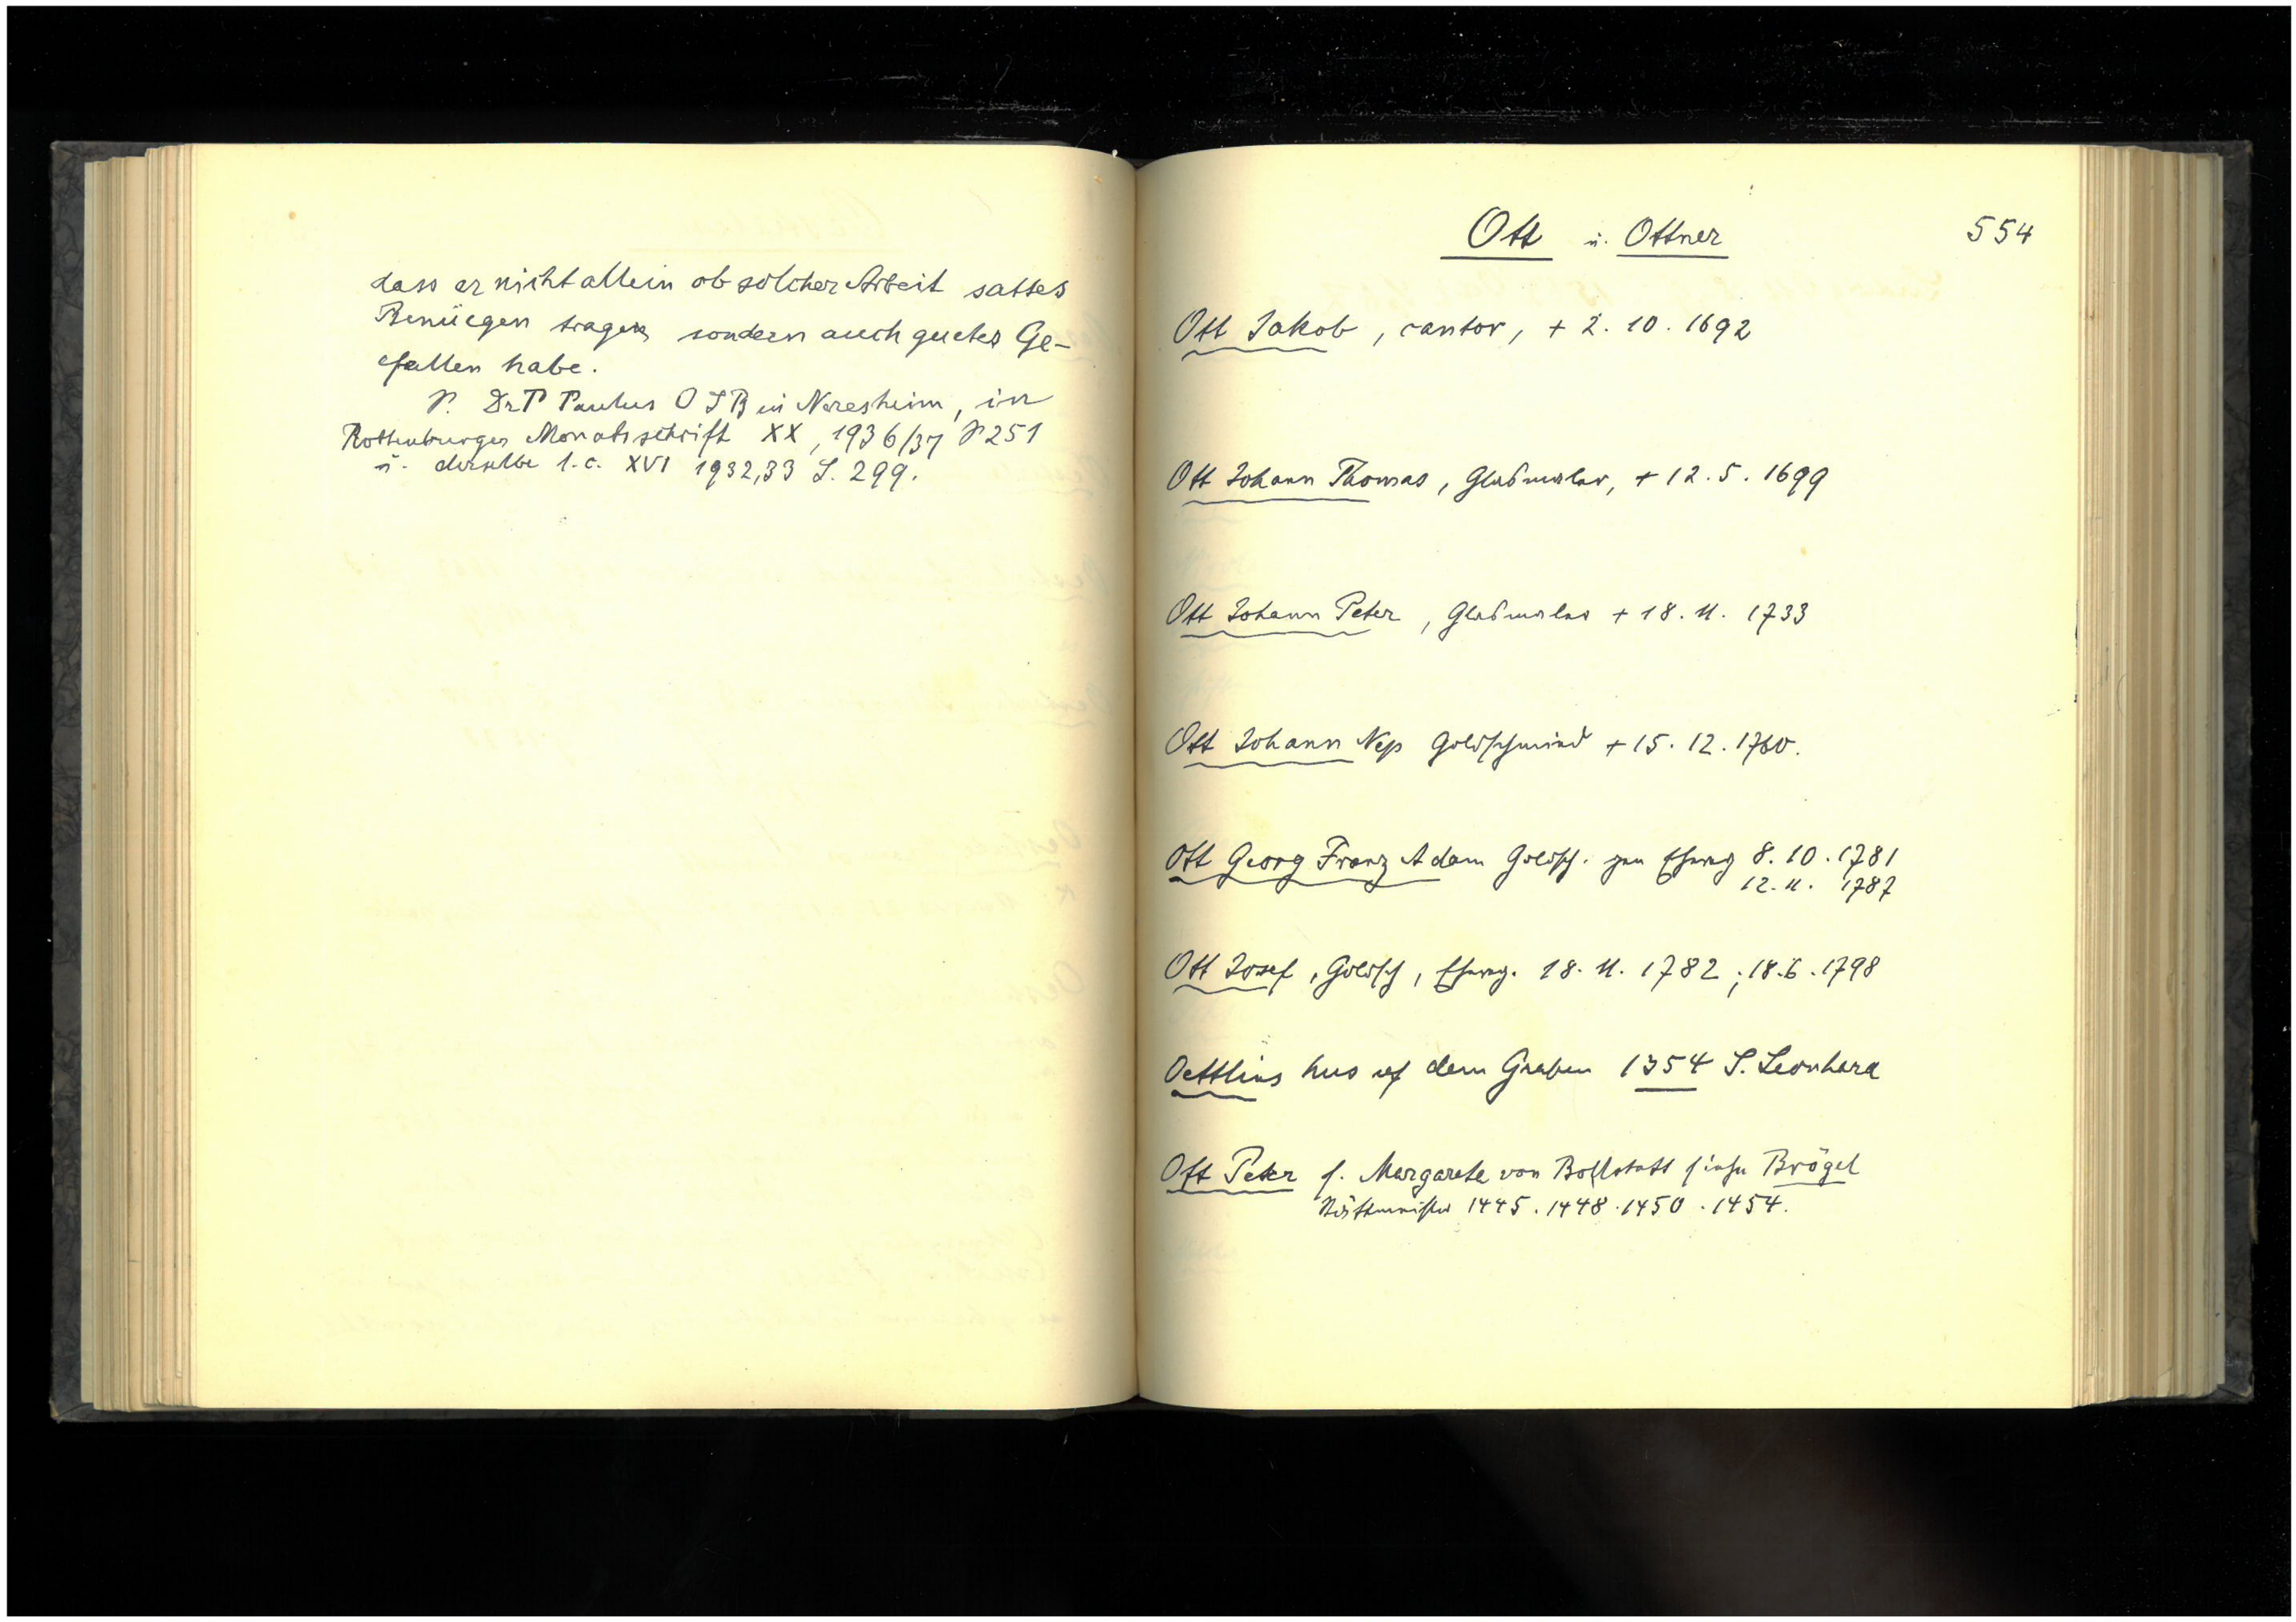 dass er nicht allein ob solcher Arbeit sattes
Benüegen tragen sondern auch guetes Ge-
fallen habe.
S. Dr P Paulus O S B in Neresheim, in
Rottenburger Monatsschrift XX, 1936/37 S 251
u. derselbe l.c. XVI 1932,33 S. 299.
Ott u. Ottner
554
Ott Jakob, cantor, + 2. 10. 1692
Ott Johann Thomas, Glasmaler, + 12. 5. 1699
Ott Johann Peter, Glasmaler + 18. 11. 1733
Ott Johann Nep Goldschmied + 15. 12. 1760.
Ott Georg Franz Adam Goldsch. zum Eheweg 8. 10. 1781
12. 11. 1787
Ott Josef, Goldsch, Eheweg. 18. 11. 1782; 18. 6. 1798
Oettlins hus uf dem Graben 1354 S. Leonhard
Ott Peter s. Margarete von Bollstatt siehe Brögel
1445. 1448. 1450. 1454.